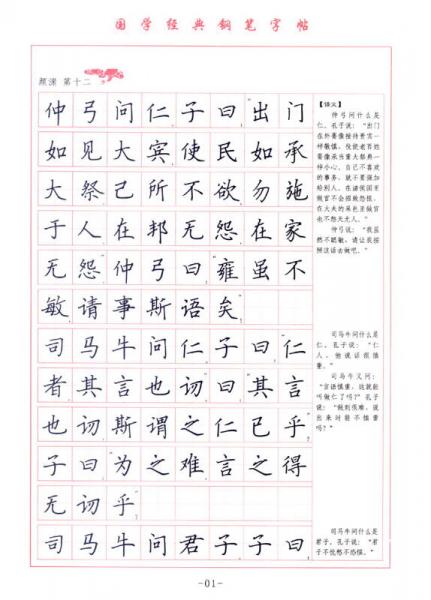 国学经典钢笔字帖
颜渊 第十二
仲弓问仁子曰"出门
如见大宾使民如承
大祭己所不欲勿施
于人在邦无怨在家
无怨"仲弓曰"雍虽不
敏请事斯语矣"
司马牛问仁子曰"仁
者其言也讱"曰"其言
也讱斯谓之仁已乎"
子曰"为之难言之得
无讱乎"
司马牛问君子子曰
【译文】
仲弓问什么是
仁。孔子说:"出门
在外要像接待贵宾一
样敬慎,役使老百姓
要像承当重大祭典一
样小心。自己不喜欢
的事务,就不要强加
给别人。在诸侯国里
做官不会招致怨恨,
在大夫的采邑里做官
也不怨天尤人。"
仲弓说:"我虽
然不聪敏,请让我按
照这话去做吧。"
司马牛问什么是
仁。孔子说:"仁
人,他说话很慎
重。"
司马牛又问:
"言语慎重,这就能
叫做仁了吗?"孔子
说:"做到很难,说
出来时能不慎重
吗?"
司马牛问什么是
君子。孔子说:"君
子不忧愁不恐惧。"
-01-